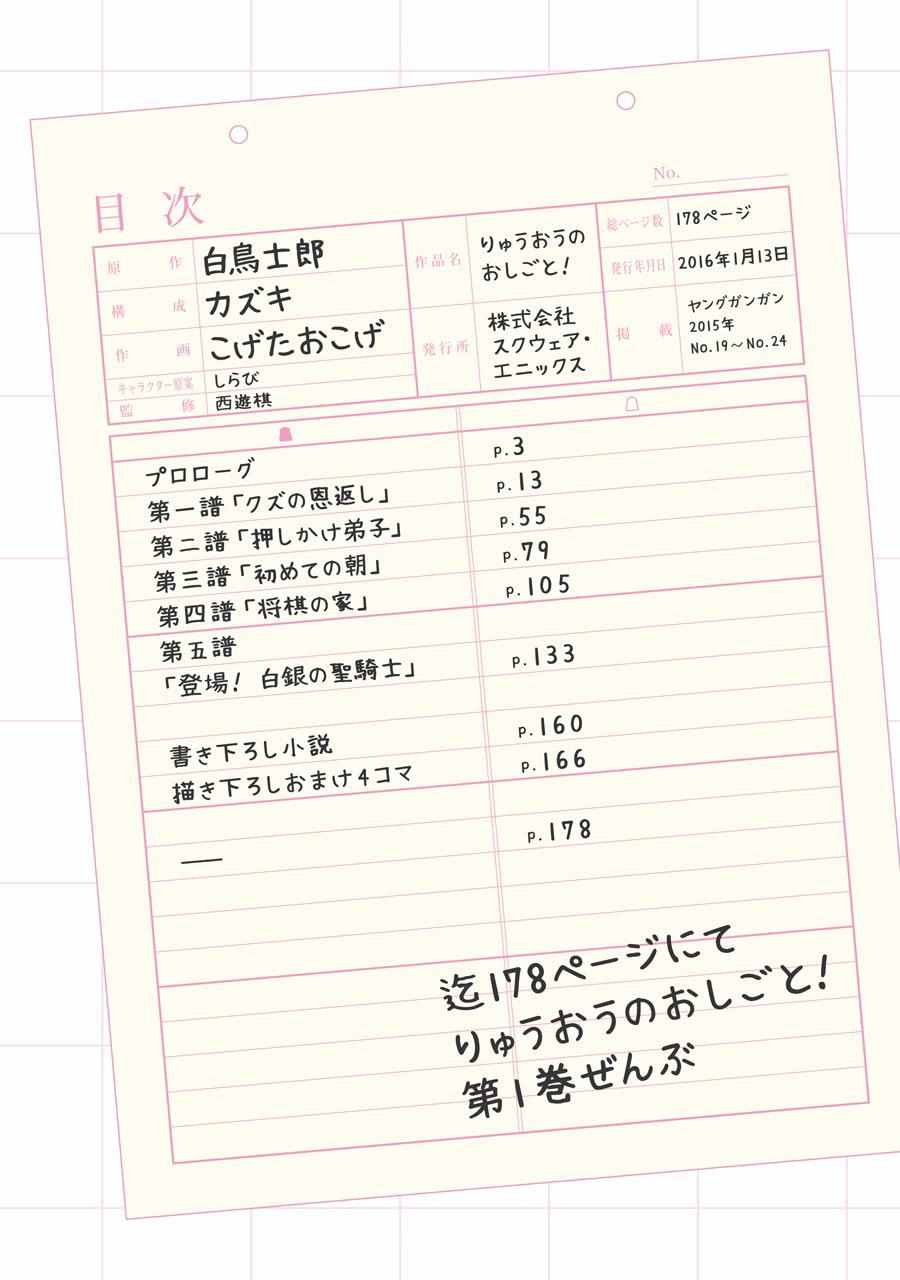 目次
No.
原作 白鳥士郎
構成 カズキ
作画 こげたおこげ
キャラクター原案 しらび
監修 西遊棋
作品名 りゅうおうの
おしごと!
発行所 株式会社
スクウェア・
エニックス
総ページ数 178ページ
発行年月日 2016年1月13日
掲載 ヤングガンガン
2015年
No.19〜No.24
プロローグ p.3
第一譜「クズの恩返し」 p.13
第二譜「押しかけ弟子」 p.55
第三譜「初めての朝」 p.79
第四譜「将棋の家」 p.105
第五譜
「登場! 白銀の聖騎士」 p.133
書き下ろし小説 p.160
描き下ろしおまけ4コマ p.166
―― p.178
迄178ページにて
りゅうおうのおしごと!
第1巻ぜんぶ